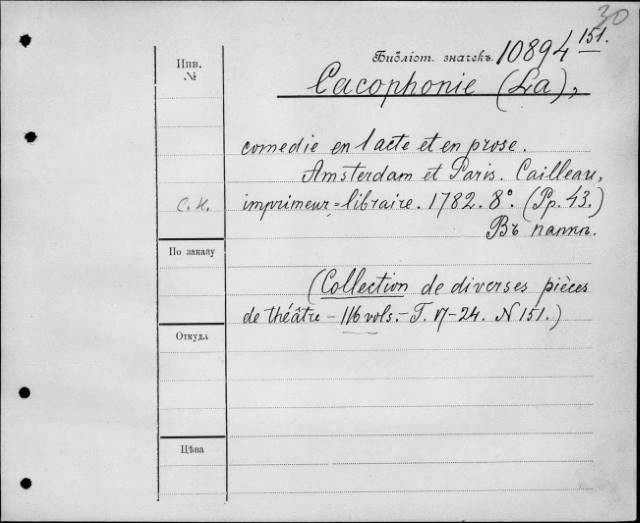 30
Инв.
№
Библіот. значекъ. 10894 151.
Cacophonie (La),
comedie en 1 acte et en prose.
Amsterdam et Paris. Cailleau,
С. К. imprimeur=libraire. 1782. 8°. (Pp. 43.)
Въ папк.
По заказу
(Collection de diverses pièces
de théâtre – 116 vols. – T. 17–24. N 151.)
Откуда
Цѣна